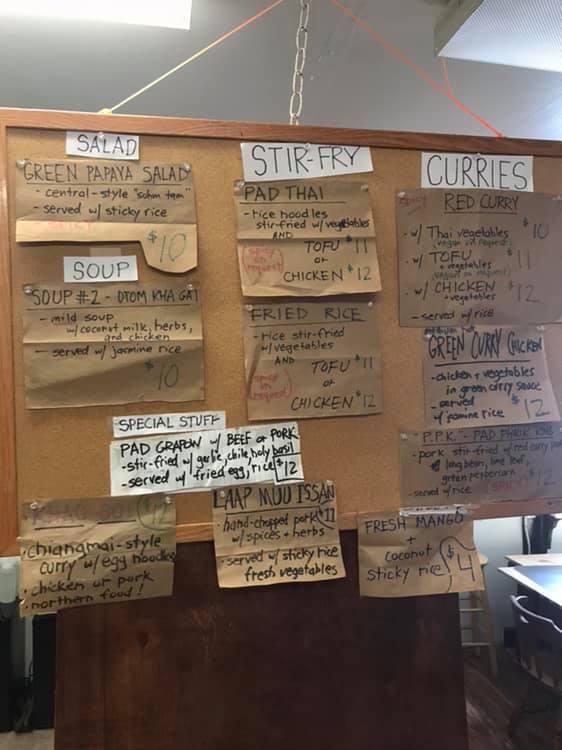 SALAD
GREEN PAPAYA SALAD
- central-style "sohm tam"
- served w/ sticky rice
- SPICY
$10
SOUP
SOUP #2 - DTOM KHA GAI
- mild soup
w/coconut milk, herbs,
and chicken
- served w/ jasmine rice
$10
STIR-FRY
PAD THAI
- rice noodles
stir-fried w/ vegetables
AND
TOFU $11
or
CHICKEN $12
spicy on request
FRIED RICE
- rice stir-fried
w/ vegetables
AND
TOFU $11
or
CHICKEN $12
spicy on request
CURRIES
SPICY
RED CURRY
- w/ Thai vegetables $10
(vegan on request)
- w/ TOFU $11
+ vegetables
(vegan on request)
- w/ CHICKEN $12
+ vegetables
- served w/ rice
GREEN CURRY CHICKEN
- chicken + vegetables
in green curry sauce
- served
w/ jasmine rice $12
P.P.K. - PAD PHRIK
- pork stir-fried w/ red curry
long bean, lime leaf,
green peppercorn
- served w/ rice SPICY $12
SPECIAL STUFF
PAD GRAPOW w/ BEEF or PORK
- stir-fried w/ garlic, chile, holy basil
- served w/ fried egg, rice $12
KHAO SOI $12
• chiangmai-style
curry w/ egg noodles
• chicken or pork
• northern food!
LAAP MUU ISSAN
- hand-chopped pork $11
w/ spices + herbs
- served w/ sticky rice
fresh vegetables
FRESH MANGO
+
coconut
sticky rice $4